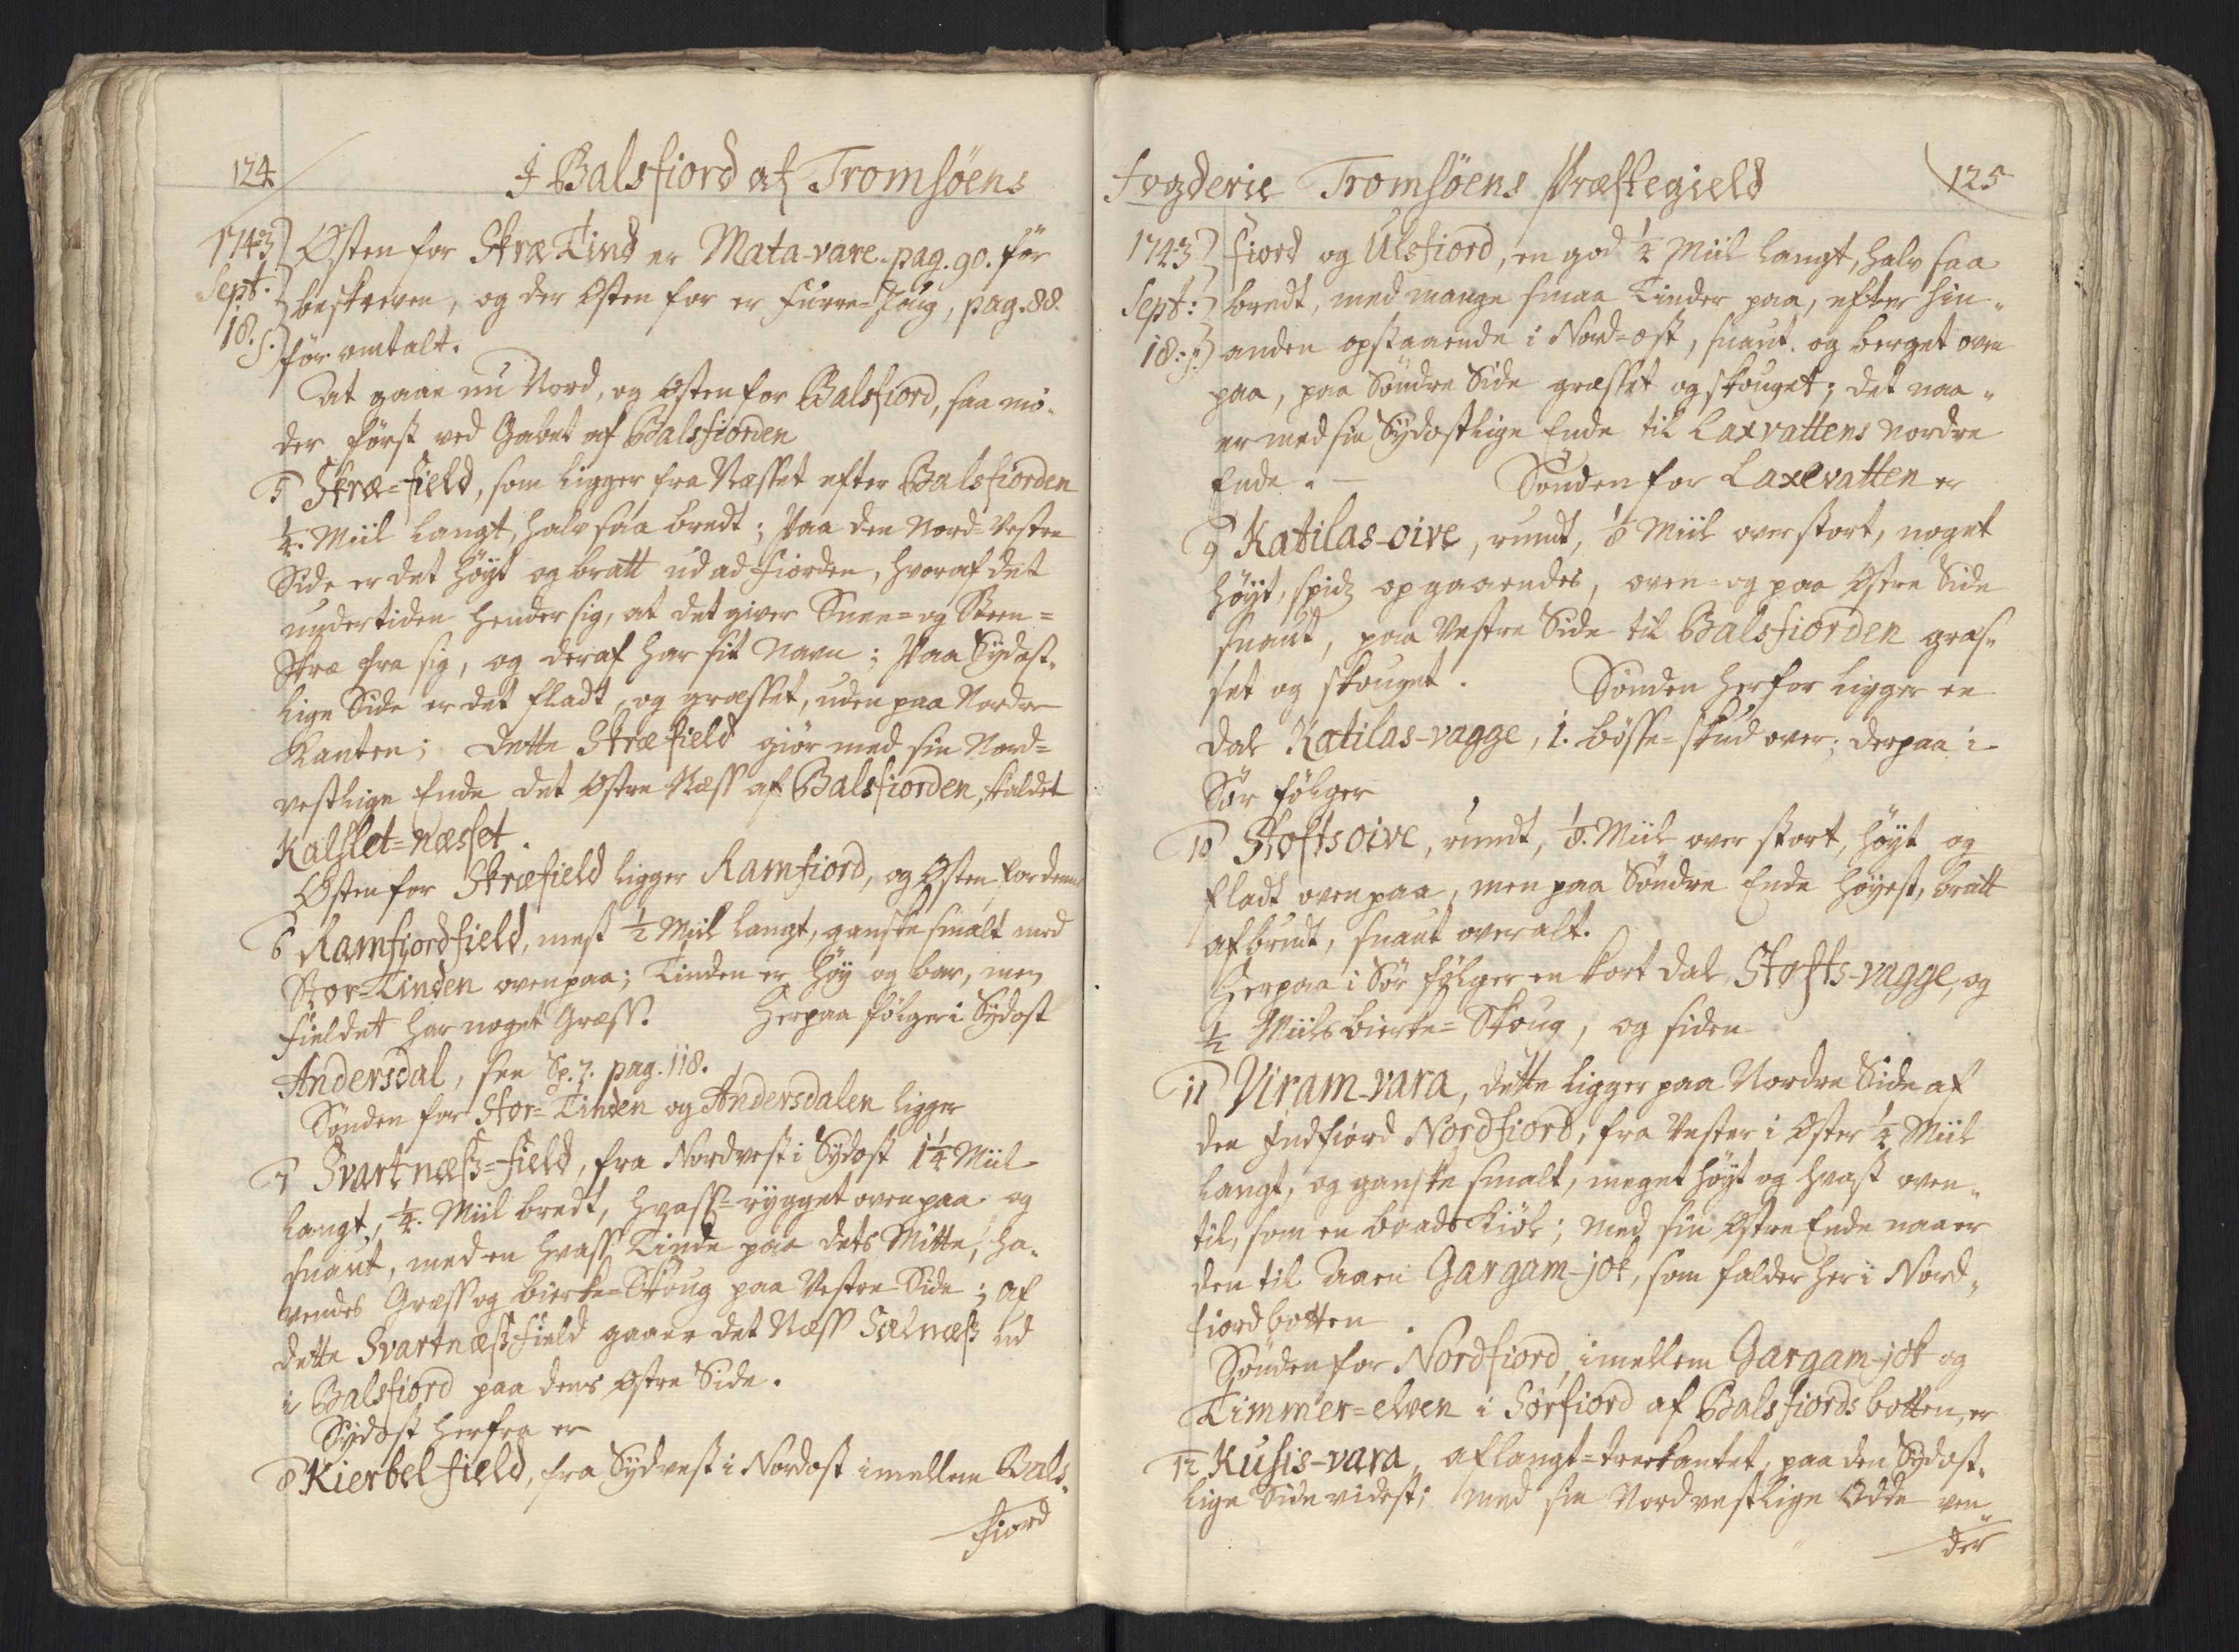 124
I Balsfiord af Tromsöens
1743
Sept:
18. s.
Østen for Skræ Tind er Mata-vare. pag. 90. för
beskreven, og der Østen for er Furre-Houg, pag. 88.
för omtalt.
At gaae nu Nord, og Østen for Balsfiord, saa mö-
der först ved Gabet af Balsfiorden
5 Skræ=field, som ligger fra Næsset efter Balsfiorden
1/4. Miil langt, halv saa bredt; Paa den Nord-Vestre
Side er det höyt og bratt ud ad Fiorden, hvoraf det
undertiden hender sig, at det giver Snee= og Steen=
Skræ fra sig, og deraf har sit Navn; Paa Sydost-
lige Side er det fladt, og græsset, uden paa Nordre
Kanten; Dette Skræfield giör med sin Nord=
vestlige Ende det Østre Næss af Balsfiorden, kaldet
Kalslet=næsset.
Østen for Skræfield ligger Ramfiord, og Østen for denne
6 Ramfiordfield, mest 1/2 Miil langt, ganske smalt med
Stor=Tinden ovenpaa; Tinden er höy og bar, men
Fieldet har noget Græss. Herpaa fölger i Sydost
Andersdal, see Sp. 7. pag. 118.
Sönden for Stor=Tinden og Andersdalen ligger
7 Svartnæss=field, fra Nordvest i Sydost 1 1/4 Miil
langt, 1/4. Miil bredt, hvass-rygget ovenpaa og
snaut, med en hvass Tinde paa dets Mitte, ha-
vendes Græss og bierke=Skoug paa Vestre Side; af
dette Svartnæssfield gaaer det Næss Selnæss ud
i Balsfiord paa dens Østre Side.
Sydost herfra er
8 Kierbelfield, fra Sydvest i Nordost imellem Bals-
fiord
Fogderie Tromsöens Præstegield
125
1743
Sept:
18. s.
fiord og Ulsfiord, en god 1/4 Miil langt, halv saa
bredt, med mange smaa Tinder paa, efter hin-
anden opstaaende i Nord=ost, snaut og berget oven
paa, paa Söndre Side græsset og skouget; det naa-
er med sin Sydostlige Ende til Laxvattens nordre
Ende. — Sönden for Laxevatten er
9 Katilas-oive, rundt, 1/8 Miil over stort, noget
höyt, spidz opgaaendes, oven= og paa Østre Side
snaut, paa Vestre Side til Balsfiorden græs-
set og skouget. Sönden herfor ligger en
Dal Katilas-vagge, 1. bösse=skud over; derpaa i
Sör fölger
10 Stoftsoive, rundt, 1/8. Miil over stort, höyt og
fladt ovenpaa, men paa Söndre Ende höyest, bratt
afbrudt, snaut overalt.
Herpaa i Sör fölger en kort Dal, Stofts-vagge, og
1/2 Miils bierke=Skoug, og siden
11 Viram-vara, dette ligger paa Nordre Side af
den Indfiord Nordfiord, fra Vester i Øster 1/4 Miil
langt, og ganske smalt, meget höyt og hvast oven-
til, som en baads Kiöl; med sin Østre Ende naaer
den til Aaen Gargam-jok, som falder her i Nord-
fiordbotten.
Sönden for Nordfiord, imellem Gargam-jok og
Timmer=elven i Sörfiord af Balsfiords botten, er
12 Kusis-vara, aflangt=treekantet, paa den Sydost-
lige Side videst; med sin Nordvestlige Odde ven-
der